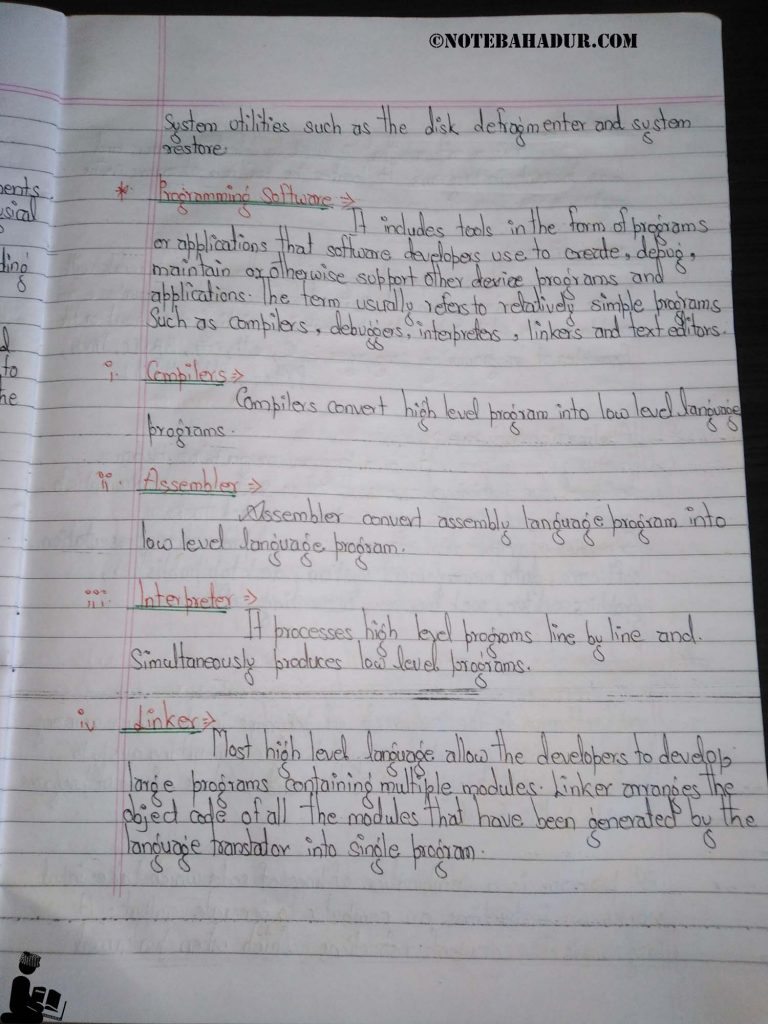 ©NOTEBAHADUR.COM
System utilities such as the disk defragmenter and system
restore.
* Programming Software ⇒
It includes tools in the form of programs
or applications that software developers use to create, debug,
maintain or otherwise support other device programs and
applications. The term usually refers to relatively simple programs
Such as compilers, debuggers, interpreters, linkers and text editors.
i. Compilers ⇒
Compilers convert high level program into low level language
programs.
ii. Assembler ⇒
Assembler convert assembly language program into
low level language program.
iii. Interpreter ⇒
It processes high level programs line by line and.
Simultaneously produces low level programs.
iv Linker ⇒
Most high level language allow the developers to develop
large programs containing multiple modules. Linker arranges the
object code of all the modules that have been generated by the
language translator into single program.